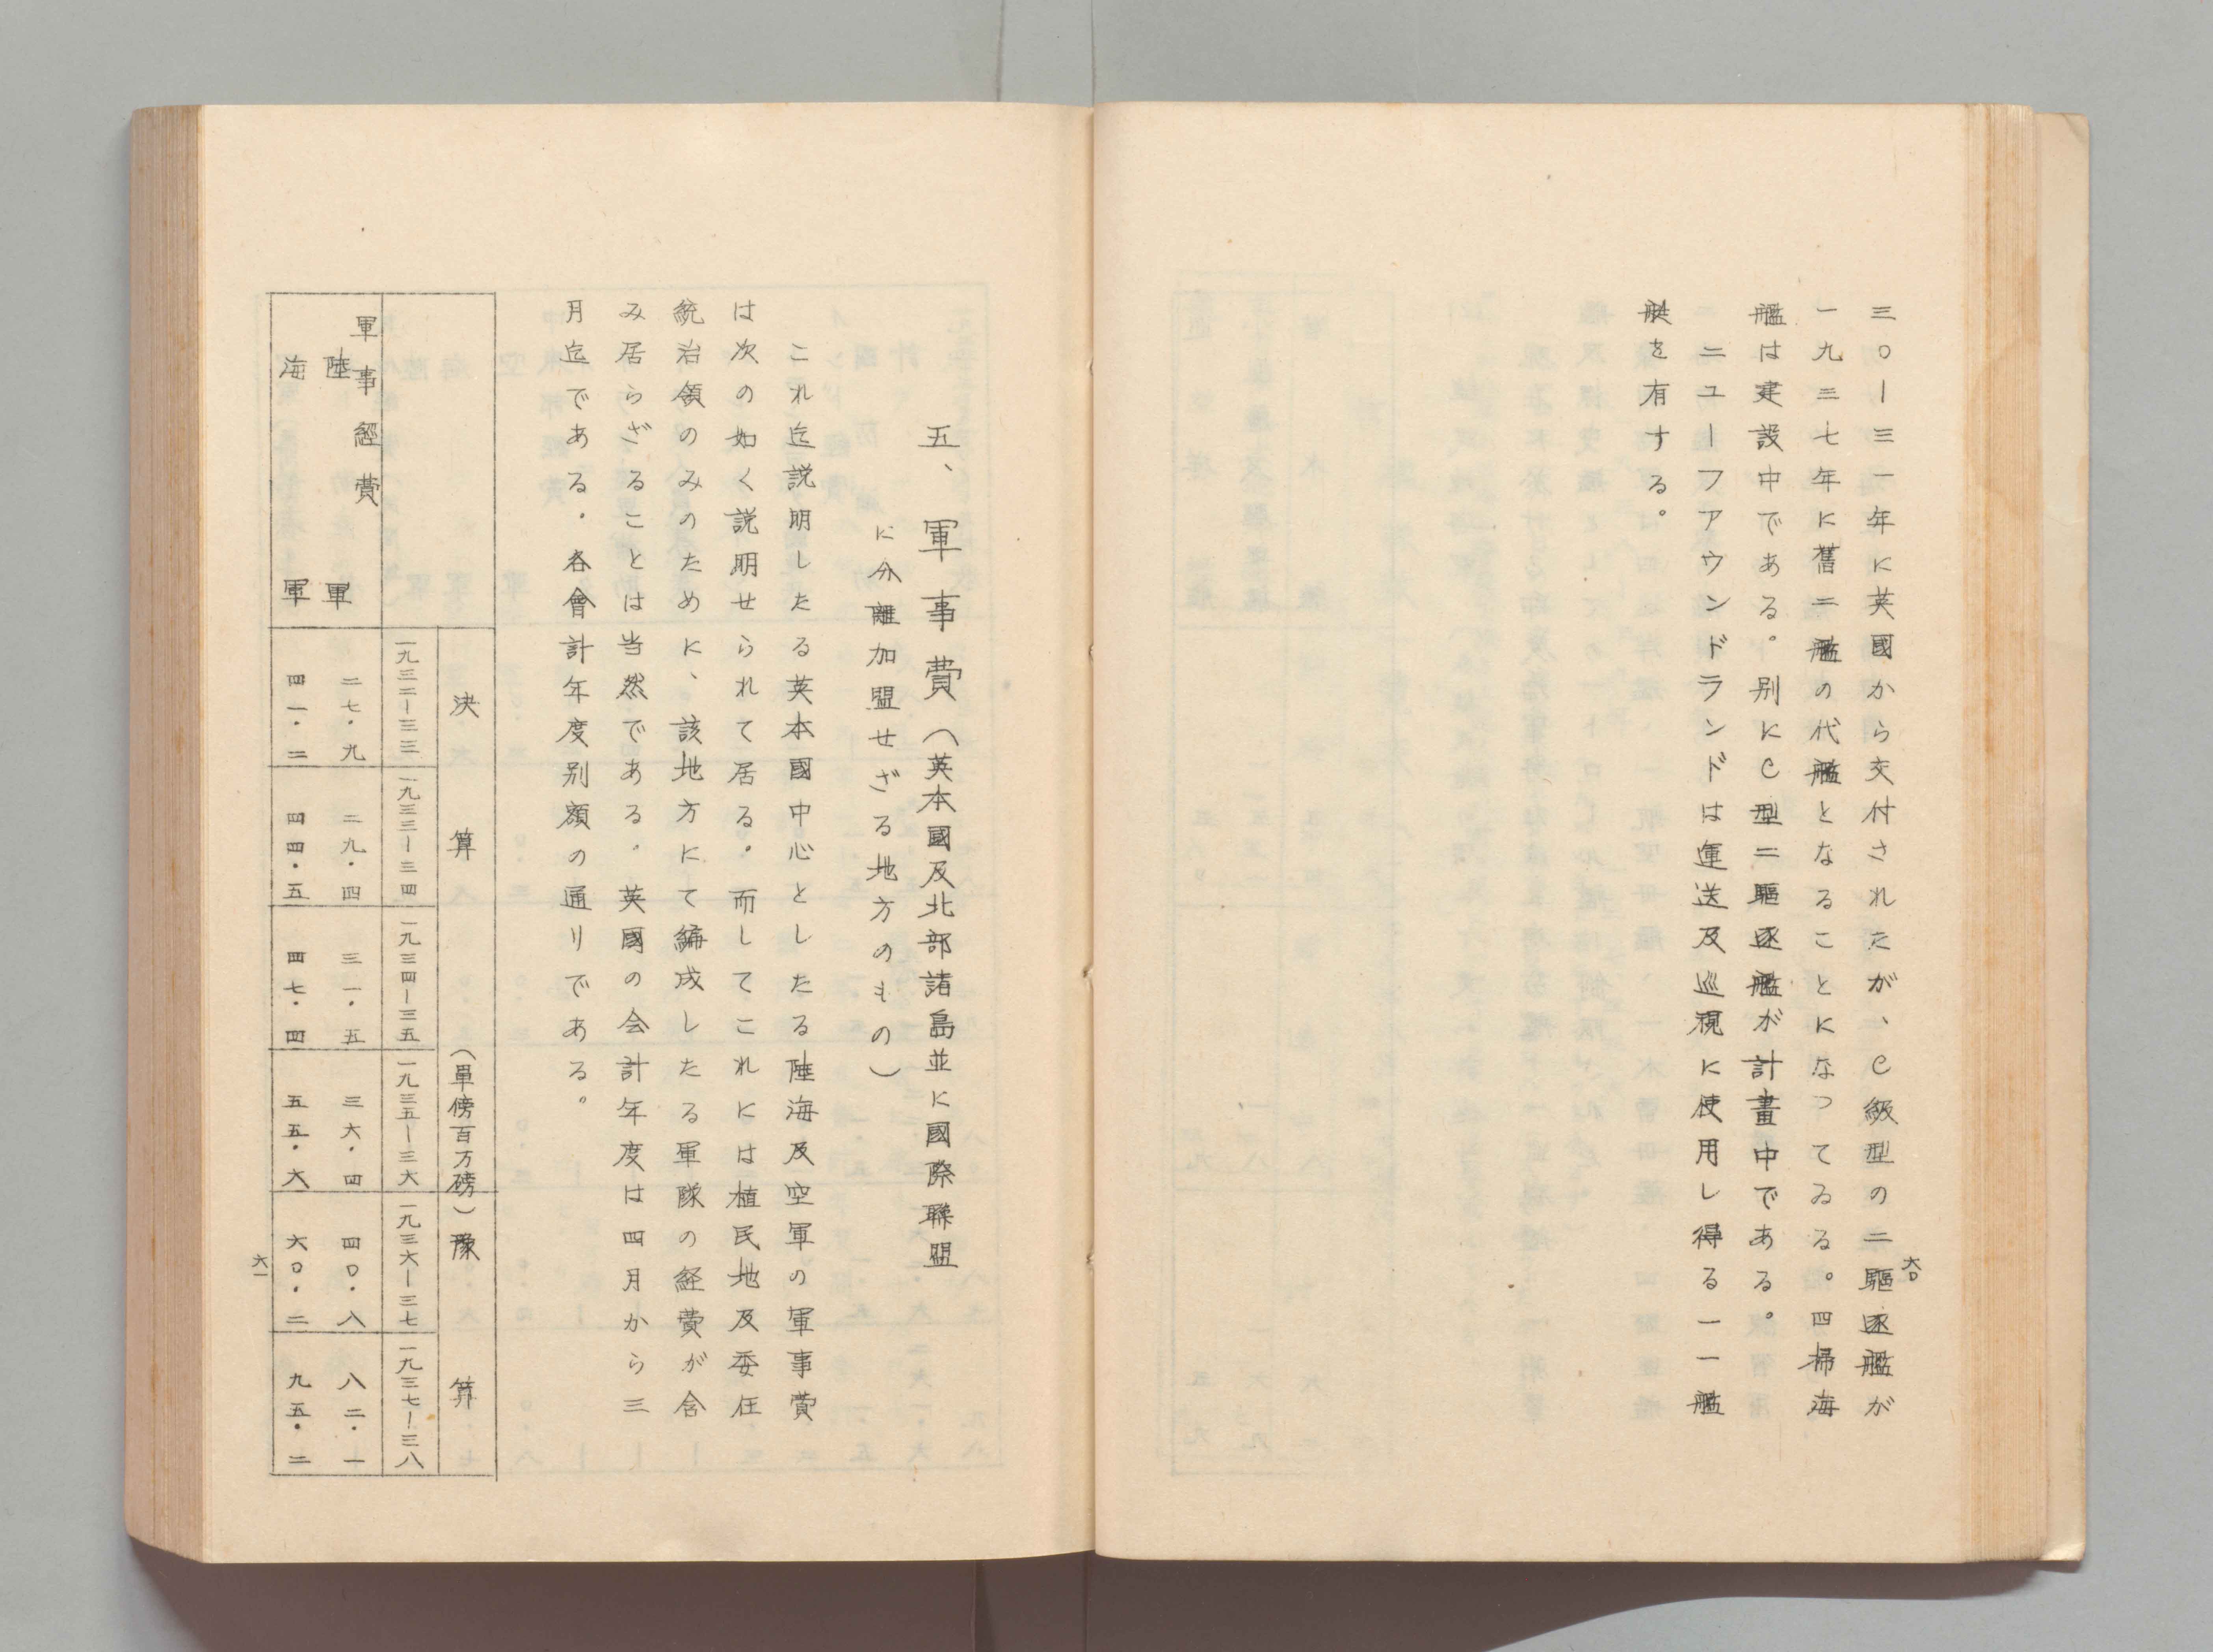 三〇ー三一年に英國から交付されたが、C級型の二驅逐艦が
一九三七年に舊二艦の代艦となることになつてゐる。四掃海
艦は建設中である。別にC型二驅逐艦が計畫中である。
ニユーフアウンドランドは運送及巡視に使用し得る一一艦
艇を有する。
六〇
五、軍事費（英本國及北部諸島並に國際聯盟
に分離加盟せざる地方のもの）
これ迄説明したる英本國中心としたる陸海及空軍の軍事費
は次の如く説明せられて居る。而してこれには植民地及委任
統治領のみのために、該地方にて編成したる軍隊の経費が含
み居らざることは当然である。英國の会計年度は四月から三
月迄である。各會計年度別額の通りである。
決算（單傍百万磅）豫算
一九三二ー三三 一九三三ー三四 一九三四ー三五 一九三五ー三六 一九三六ー三七 一九三七ー三八
軍事經費
陸軍 二七・九 二九・四 三一・五 三六・四 四〇・八 八二・一
海軍 四一・二 四四・五 四七・四 五五・六 六〇・二 九五・二
六一